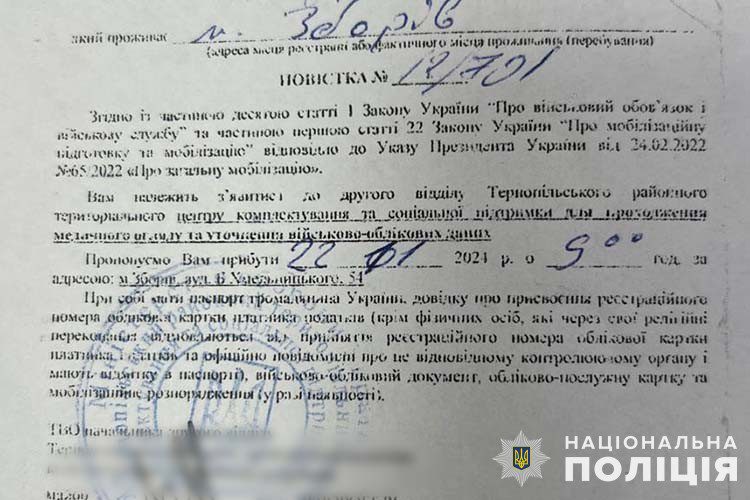 який проживає м. Зборів
(адреса місця реєстрації або фактичного місця проживання (перебування)
ПОВІСТКА № 12/701
Згідно із частиною десятою статті 1 Закону України “Про військовий обов’язок і
військову службу” та частиною першою статті 22 Закону України “Про мобілізаційну
підготовку та мобілізацію” відповідно до Указу Президента України від 24.02.2022
№65/2022 «Про загальну мобілізацію».
Вам належить з’явитися до другого відділу Тернопільського районного
територіального центру комплектування та соціальної підтримки для проходження
медичного огляду та уточнення військово-облікових даних
Пропоную Вам прибути 22 01 2024 р. о 9 00 год. за
адресою: м Зборів, вул. Б Хмельницького, 54
При собі мати паспорт громадянина України, довідку про присвоєння реєстраційного
номера облікової картки платника податків (крім фізичних осіб, які через свої релігійні
переконання відмовляються від прийняття реєстраційного номера облікової картки
платника податків та офіційно повідомили про це відповідному контролюючому органу і
мають відмітку в паспорті), військово-обліковий документ, обліково-послужну картку та
мобілізаційне розпорядження (у разі наявності).
ТВО начальника другого
НАЦІОНАЛЬНА
ПОЛІЦІЯ